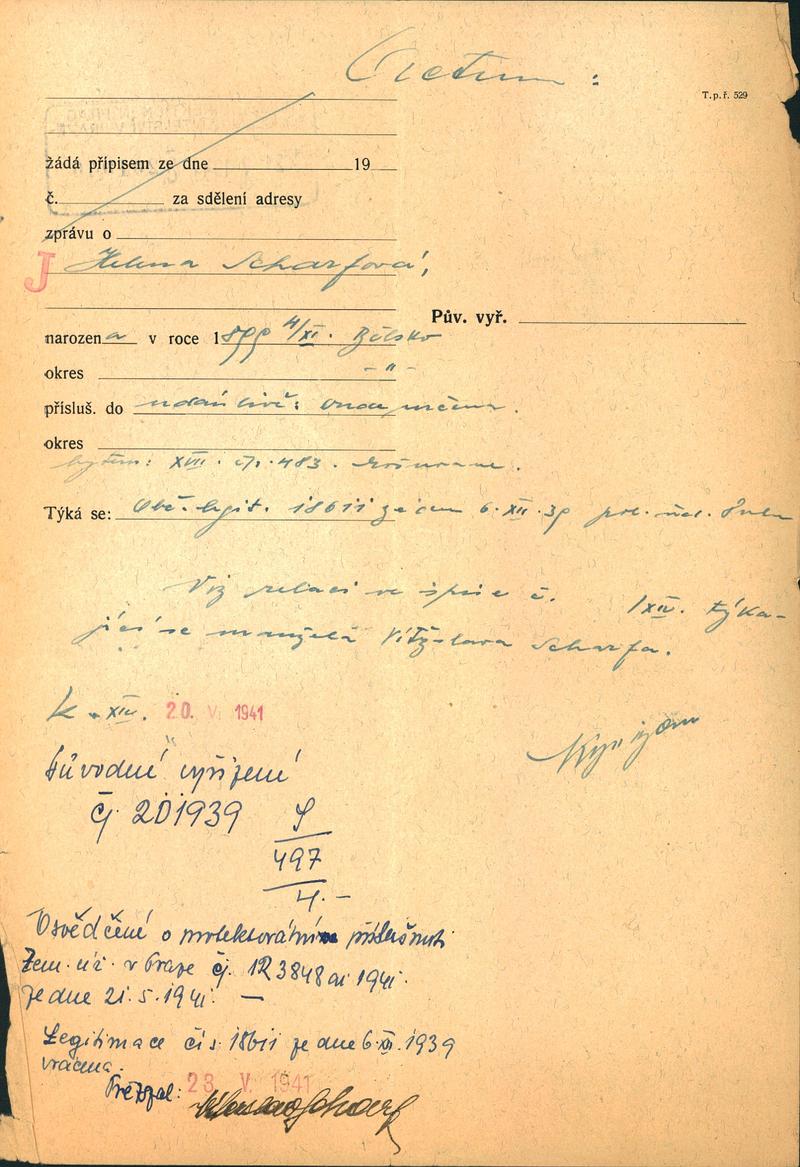 T. p. ř. 529
žádá přípisem ze dne 19
č. za sdělení adresy
zprávu o
J Helena Scharfová,
Pův. vyř.
narozena v roce 1899 4/XI. Bělsko
okres -"-
přísluš. do
okres
bytem: XVII. čp. 483.
Týká se: Obč. legit. 18611 ze dne 6.XII.39 pol.
Viz relaci ve spise č. /XIV. týka-
jící se manžela Vítězslava Scharfa.
k XIV. 20. V. 1941
Původné vyřízení
čj. 201939
S
497
4.-
Osvědčené o protektorátním příslušnosti
Zem. úř. v Praze čj. 123848 ai 1941.
ze dne 21.5.1941. —
Legitimace čís. 18611 ze dne 6.XII.1939
vrácena.
Převzal: 23. V. 1941